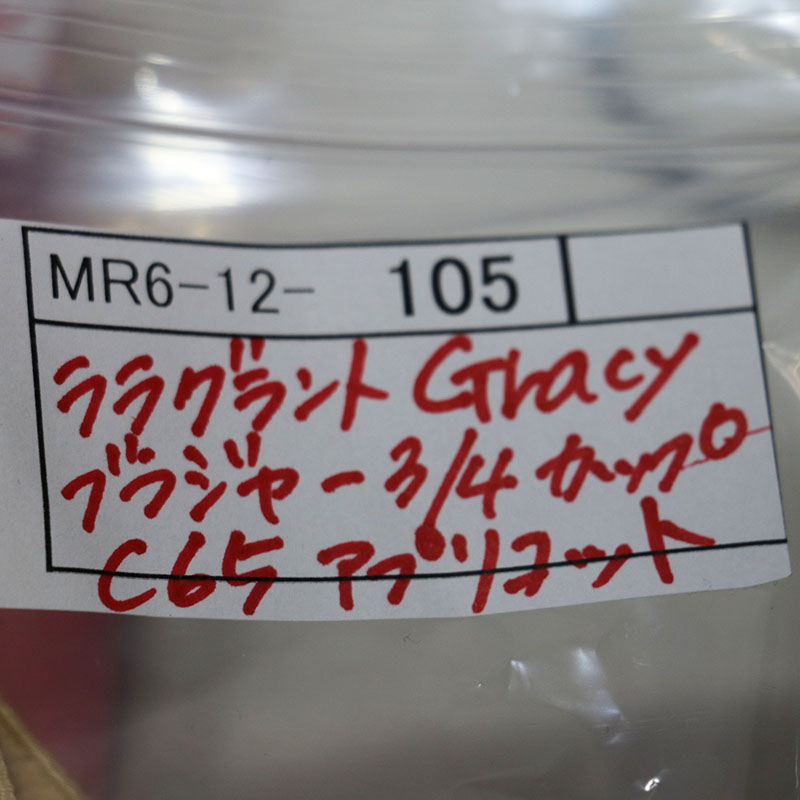 MR6-12- 105
ララグラント Gracy
ブラジャー 3/4 カップ
C65 アプリコット